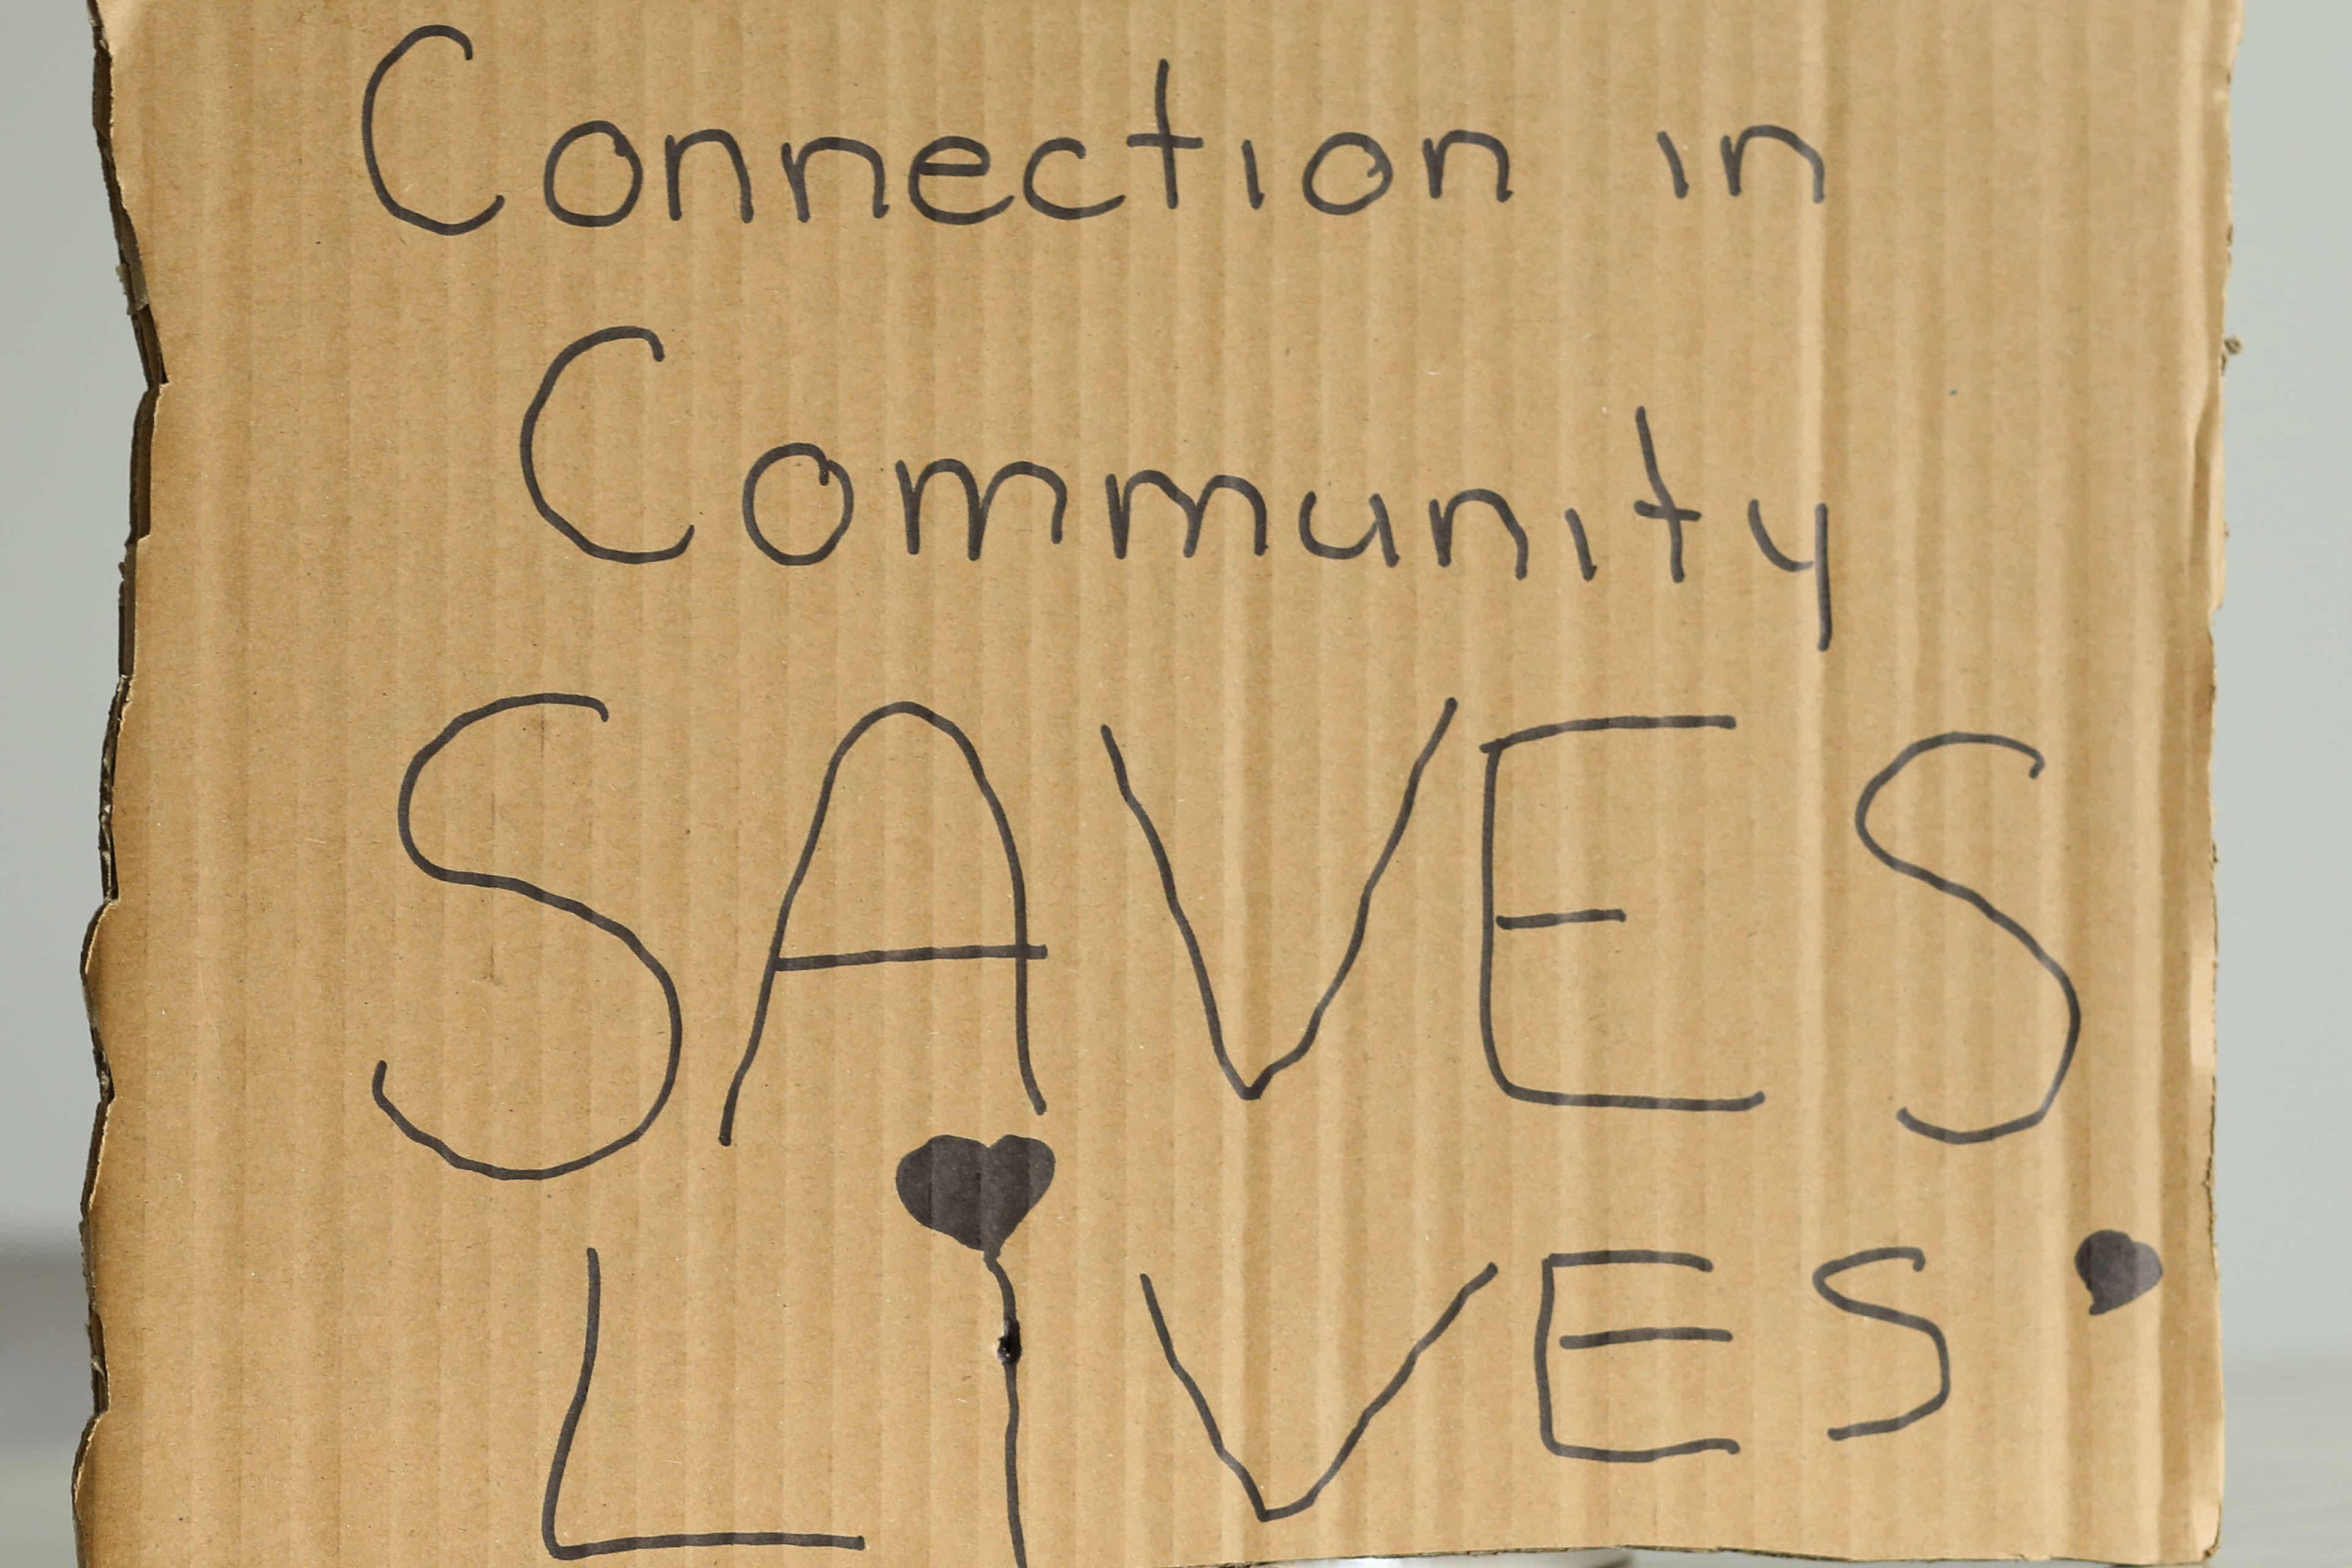 Connection in
Community
SAVES
LIVES